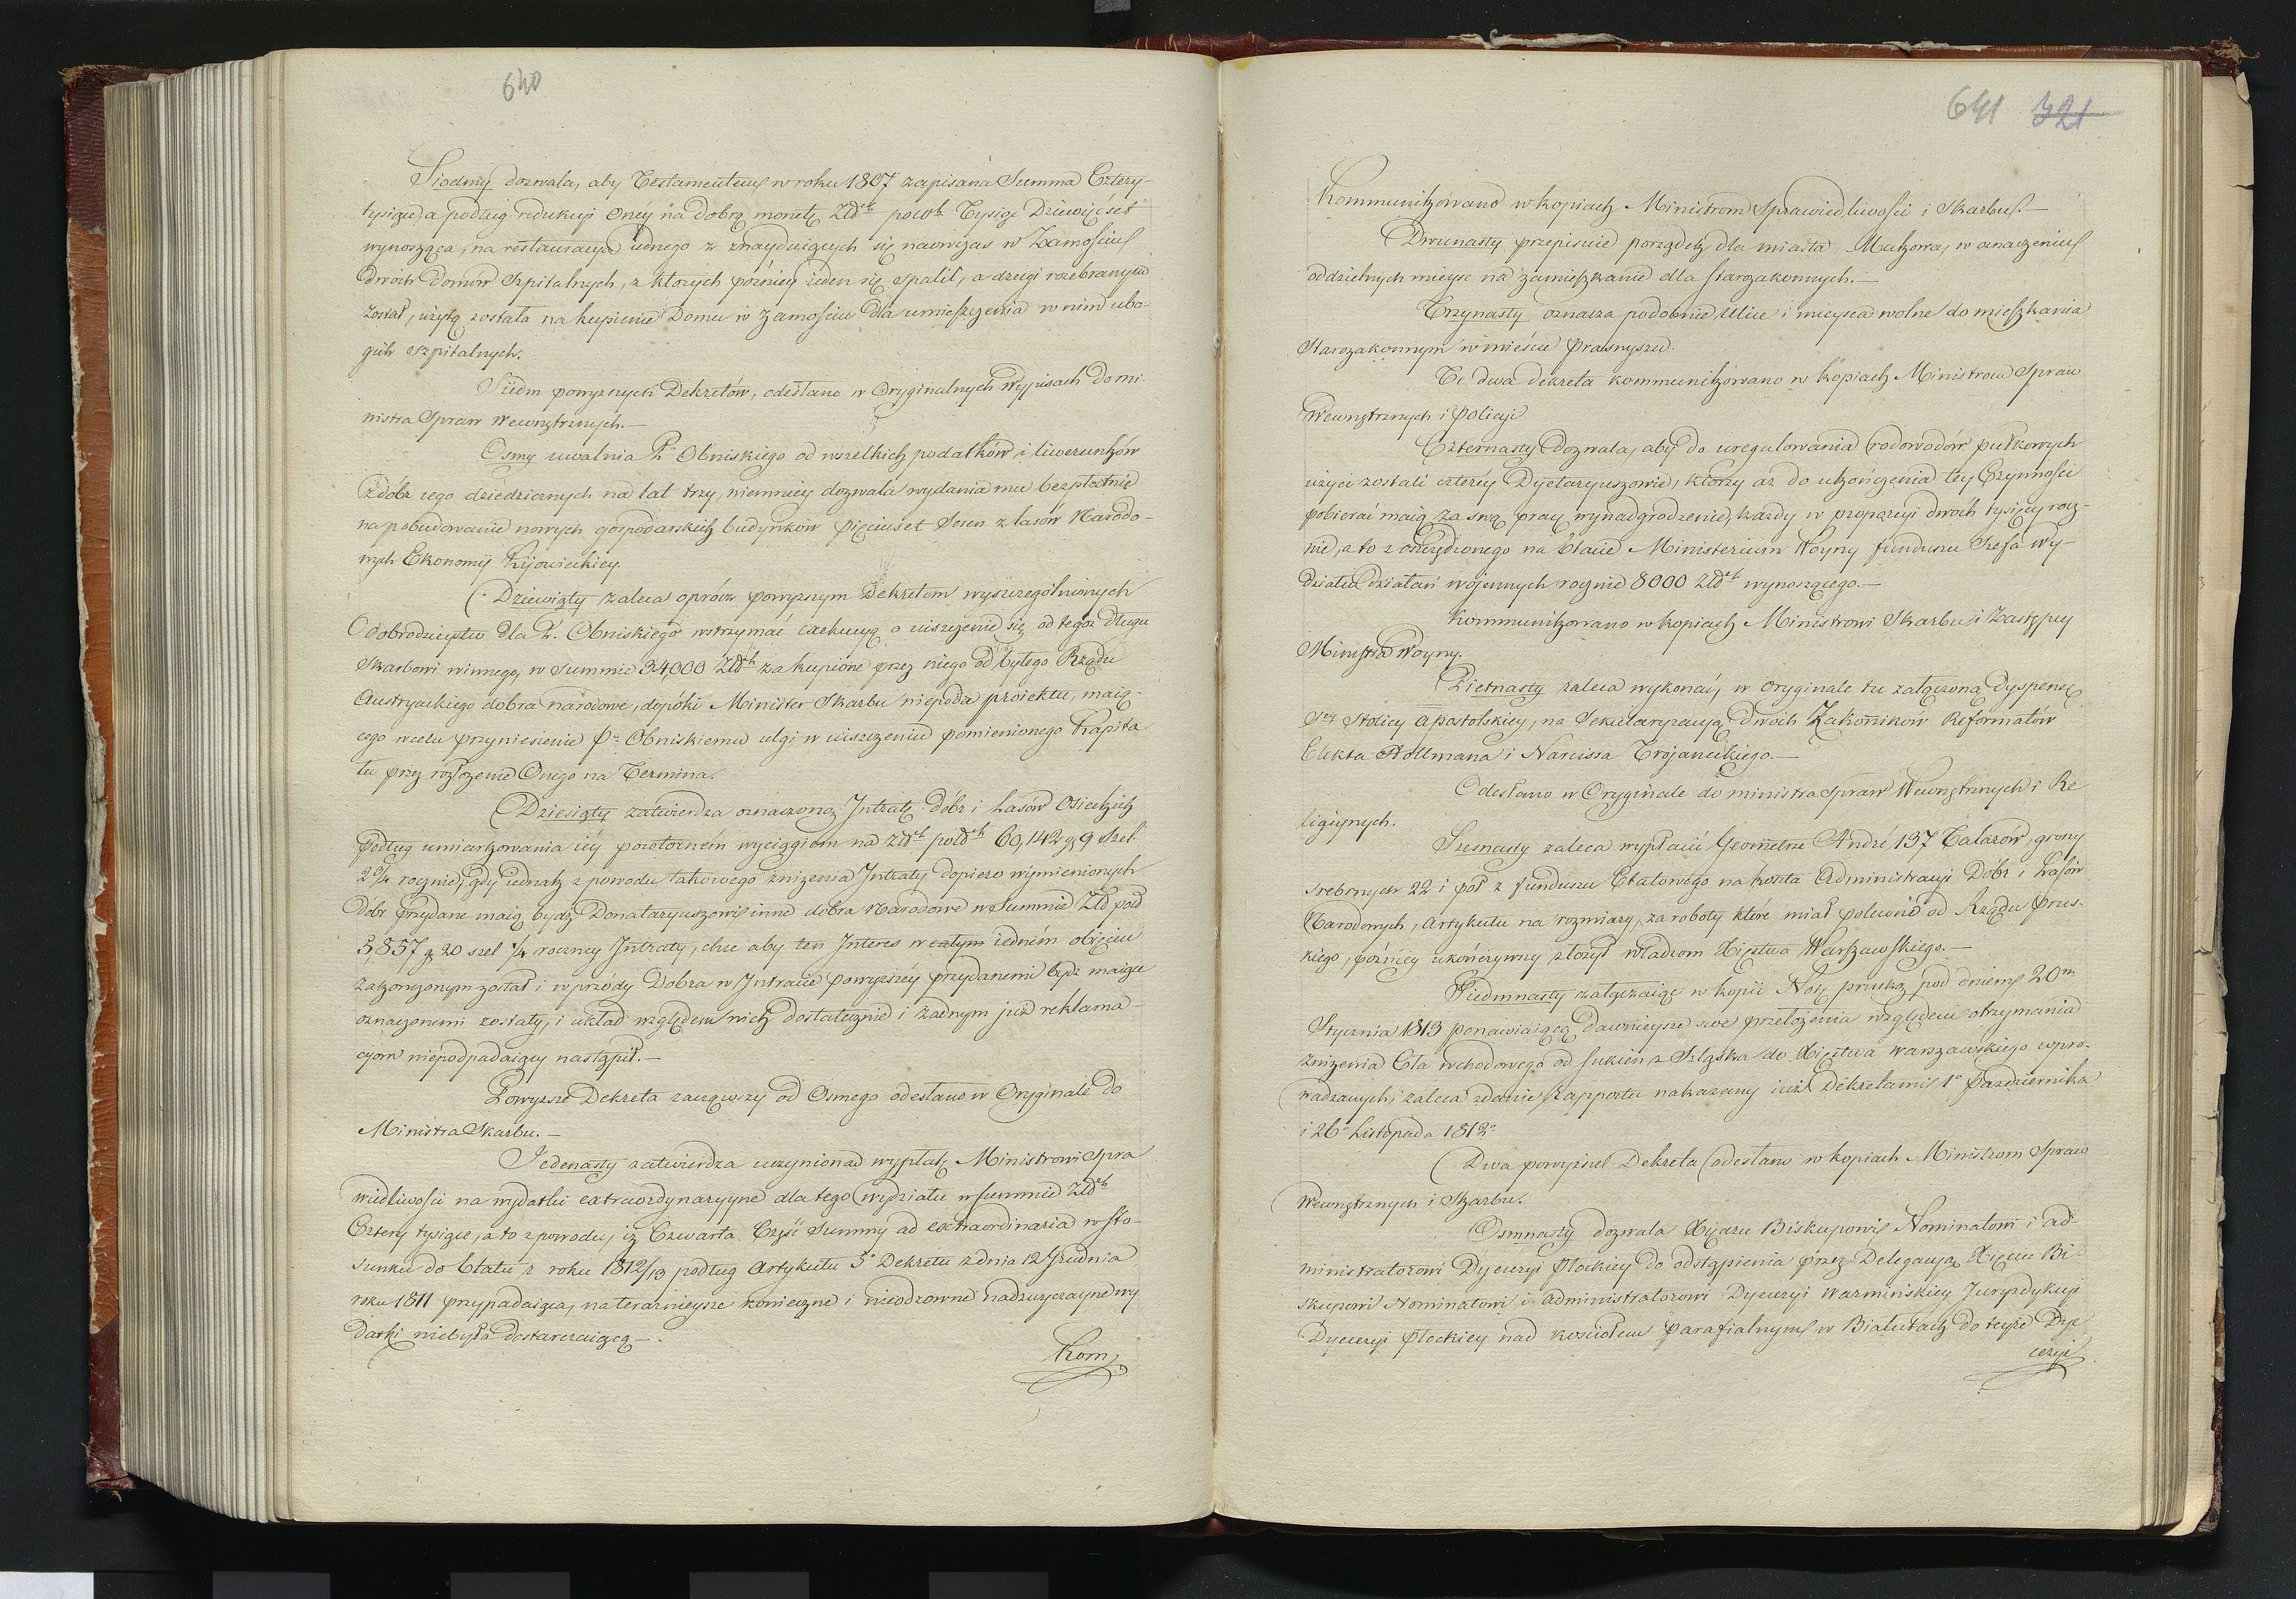 640
Siodmy dozwala, aby Testamentem w roku 1807 zapisana Summa Cztery-
tysiące, a podług redukcyi onéy na dobrą monetę Złt polch Tysiąc Dziewięćset
wynosząca, na restauracyą iednego z znayduiących się naowczas w Zamościu
dwóch Domów Szpitalnych, z których poźniey ieden się spalił, a drugi rozebranym
został, użytą została na kupienie Domu w Zamościu dla umieszczenia w nim ubo-
gich szpitalnych.
Siedm powyższych Dekretów, odesłano w Oryginalnych Wypisach do mi
nistra Spraw Wewnętrznych.—
Osmy uwalnia P. Obniskiego od wszelkich podatków i liwerunków
z dóbr iego dziedzicznych na lat trzy, niemniey dozwala wydania mu bezpłatnie
na pobudowanie nowych gospodarskich budynków pięciuset Sosen z lasów Narodo-
wych Ekonomii Kijowieckiey.
Dziewiąty zaleca oprócz powyższym Dekretem wyszczególnionych
dobrodzieystw dla P. Obniskiego wstrzymać exekucyą o uiszczenie się od tegoż Długu
Skarbowi winnego, w Summie 34,000 Złt za kupione przez niego od byłego Rządu
Austryackiego dobra narodowe, dopóki Minister Skarbu niepoda proiektu, maią-
cego w celu przyniesienie P. Obniskiemu ulgi w uiszczeniu pomienionego Kapita
łu przez rozłożenie Onego na Termina.
Dziesiąty zatwierdza oznaczoną Intratę dóbr i Lasów Osieckich
podług umiarkowania iéy powtórném wyciągiem na Złt pold 60,142 gr 9 szel.
2¼ rocznie; gdy iednak z powodu takowego zniżenia Intraty dopiero wymienionych
dóbr przydane maią bydź Donataryuszowi inne dobra Narodowe w Summie Złt pol
3,857 gr 20 szel ¼ roczney Intraty, chce aby ten Interes w całym iedném obięciu
zakończonym został i wprzódy Dobra w Intracie powyższéy przydanemi bydź maiące
oznaczonemi zostały, i układ względem nich dostatecznie i żadnym już reklama-
cyom niepodpadaiący nastąpił.—
Powyższe Dekreta zacząwszy od Osmego odesłano w Oryginale do
Ministra Skarbu.—
Jedenasty zatwierdza uczynioną wypłatę Ministrowi Spra
wiedliwości na wydatki extraordynaryyne dla tego wydziału w summie Złt
Cztery tysiące, a to z powodu, iż Czwarta Część Summy ad extraordinaria w sto-
sunku do Etatu z roku 1812/13 podług Artykułu 5° Dekretu z dnia 12 Grudnia
roku 1811 przypadaiąca, na teraźnieysze konieczne i nieodzowne nadzwyczayne wy
datki niebyła dostarczaiącą.—
Kom
641 321
Kommunikowano w kopiach Ministrom Sprawiedliwości i Skarbu.—
Dwunasty przepisuie porządek dla miasta Makowa, w oznaczeniu
oddzielnych mieysc na zamieszkanie dla starozakonnych.—
Trzynasty oznacza podobnie Ulice i mieysca wolne do mieszkania
Starozakonnym w mieście Prasnyszu.
Te dwa dekreta kommunikowano w kopiach Ministrowi Spraw
Wewnętrznych i Policyi
Czternasty Dozwala, aby do uregulowania rodowodów pułkowych
użyci zostali czteréy Dyetaryuszowie, którzy aż do ukończenia tey Czynności
pobierać maią za swą pracę wynadgrodzenie, każdy w proporcyi dwóch tysięcy rocz-
nie, a to z oszczędzonego na Etacie Ministerium Woyny funduszu Szefa Wy-
działu działań wojennych rocznie 8000 Złt wynoszącego.—
Kommunikowano w kopiach Ministrowi Skarbu i Zastępcy
Ministra Woyny.
Piętnasty zaleca wykonać, w oryginale tu załączoną dyspensę
Sey Stolicy Apostolskiey, na Sekularyzacyą dwóch Zakonników Reformatów
Elekta Hollmana i Narcissa Trojaneckiego.—
Odesłano w Oryginale do ministra Spraw Wewnętrznych i Re
ligiynych.
Szesnasty zaleca wypłacić Geometrze André, 137 Talarów, groszy
srebrnych 22 i pół z funduszu Etatowego na koszta Administracyi Dóbr i Lasów
Narodowych, artykułu na rozmiary, za roboty które miał polecone od Rządu Prus-
kiego, poźniey ukończywszy złożył władzom Xięstwa Warszawskiego.—
Siedmnasty załączaiąc w kopii Notę pruską pod dniem 20m
Stycznia 1813 ponawiaiącą dawnieysze swe przełożenia względem otrzymania
zniżenia Cła wchodowego od sukien z Szląska do Xięstwa warszawskiego wpro-
wadzanych, zaleca zdanie Rapportu nakazany iuż Dekretami 1° Października
i 26° Listopada 1812°
Dwa powyższe Dekreta odesłano w kopiach Ministrom Spraw
Wewnętrznych i Skarbu.
Osmnasty dozwala Xiędzu Biskupowi Nominatowi i Ad-
ministratorowi Dyecezyi Płockiey do odstąpienia przez Delegacyą Xiędzu Bi-
skupowi Nominatowi i Administratorowi Dyecezyi Warmińskiey Jurysdykcyi
Dyecezyi Płockiey nad kościołem parafialnym w Białutach do teyże Dye
cezyi